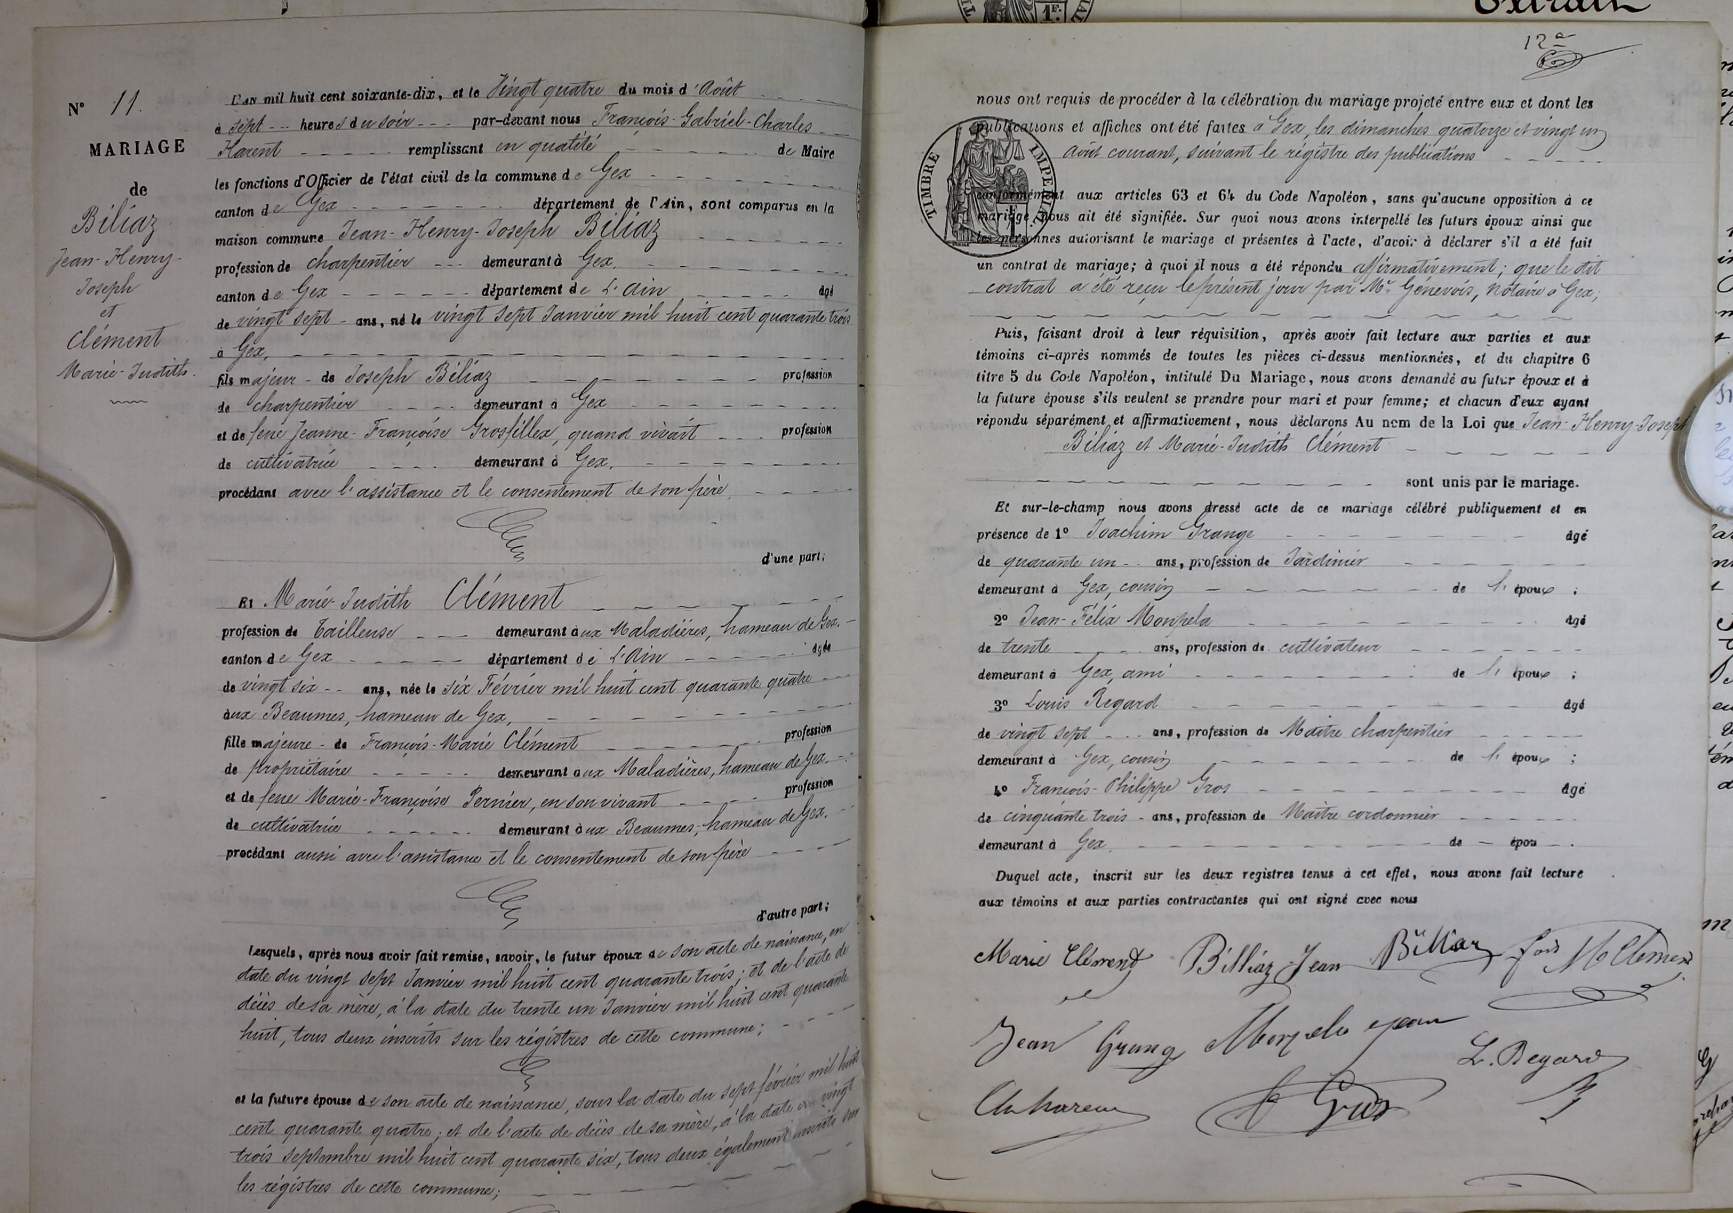 N° 11.
MARIAGE
de
Béliaz
Jean-Henry-
Joseph
et
Clément
Marie-Judith.
L'an mil huit cent soixante-dix, et le Vingt quatre du mois d'Août
à sept heures du soir par-devant nous François-Gabriel-Charles
Harent remplissant en qualité de Maire
les fonctions d'Officier de l'état civil de la commune de Gex
canton de Gex département de l'Ain, sont comparus en la
maison commune Jean-Henry-Joseph Béliaz
profession de charpentier demeurant à Gex
canton de Gex département de L'Ain âgé
de vingt sept ans, né le vingt Sept Janvier mil huit cent quarante trois
à Gex,
fils majeur de Joseph Béliaz profession
de charpentier demeurant à Gex
et de feue Jeanne-Françoise Grosfillex, quand vivait profession
de cultivatrice demeurant à Gex.
procédant avec l'assistance et le consentement de son père
d'une part;
Et Marie-Judith Clément
profession de Tailleuse demeurant aux Maladières, hameau de Gex.
canton de Gex département de L'Ain âgée
de vingt six ans, née le six Février mil huit cent quarante quatre
aux Beaumes, hameau de Gex,
fille majeure de François-Marie Clément profession
de propriétaire demeurant aux Maladières, hameau de Gex.
et de feue Marie-Françoise Pernier, en son vivant profession
de cultivatrice demeurant aux Beaumes, hameau de Gex.
procédant aussi avec l'assistance et le consentement de son père
d'autre part;
Lesquels, après nous avoir fait remise, savoir, le futur époux de son acte de naissance, en
date du vingt sept Janvier mil huit cent quarante trois; et de l'acte de
décès de sa mère, à la date du trente un Janvier mil huit cent quarante
huit, tous deux inscrits sur les régistres de cette commune;
et la future épouse de son acte de naissance, sous la date du sept février mil huit
cent quarante quatre; et de l'acte de décès de sa mère, à la date du vingt
trois septembre mil huit cent quarante six, tous deux également inscrits sur
les régistres de cette commune;
12
nous ont requis de procéder à la célébration du mariage projeté entre eux et dont les
publications et affiches ont été faites à Gex, les dimanches quatorze et vingt un
Août courant, suivant le régistre des publications
TIMBRE IMPERIAL
conformément aux articles 63 et 64 du Code Napoléon, sans qu'aucune opposition à ce
mariage nous ait été signifiée. Sur quoi nous avons interpellé les futurs époux ainsi que
les personnes autorisant le mariage et présentes à l'acte, d'avoir à déclarer s'il a été fait
un contrat de mariage; à quoi il nous a été répondu affirmativement; que le dit
contrat a été reçu le présent jour par Me Genevois, notaire à Gex;
Puis, faisant droit à leur réquisition, après avoir fait lecture aux parties et aux
témoins ci-après nommés de toutes les pièces ci-dessus mentionnées, et du chapitre 6
titre 5 du Code Napoléon, intitulé Du Mariage, nous avons demandé au futur époux et à
la future épouse s'ils veulent se prendre pour mari et pour femme; et chacun d'eux ayant
répondu séparément et affirmativement, nous déclarons Au nom de la Loi que Jean-Henry-Joseph
Béliaz et Marie-Judith Clément
sont unis par le mariage.
Et sur-le-champ nous avons dressé acte de ce mariage célébré publiquement et en
présence de 1° Joachim Grange âgé
de quarante un ans, profession de Jardinier
demeurant à Gex, cousin de l' époux ;
2° Jean-Félix Monpela âgé
de trente ans, profession de cultivateur
demeurant à Gex, ami de l' époux ;
3° Louis Regard âgé
de vingt sept ans, profession de Maître charpentier
demeurant à Gex, cousin de l' époux ;
4° François-Philippe Gros âgé
de cinquante trois ans, profession de Maître cordonnier
demeurant à Gex de épou
Duquel acte, inscrit sur les deux registres tenus à cet effet, nous avons fait lecture
aux témoins et aux parties contractantes qui ont signé avec nous
Marie Clément Billiaz Jean Billiaz fois M Clément
Jean Grange Monpela jean
L. Regard
Ch harent Gros